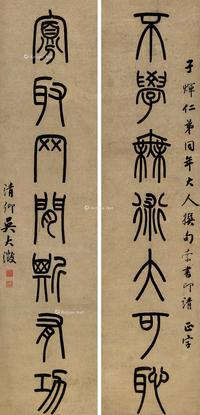 子煇仁弟同年大人撰句索書即請 正字
不學無術大可恥
取网聞斯有功
清卿吳大澂